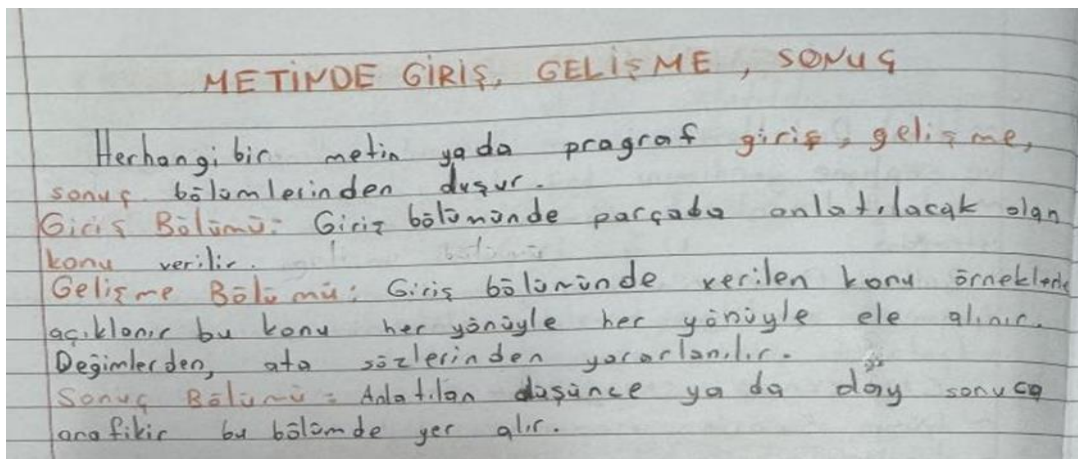 METİNDE GİRİŞ, GELİŞME, SONUÇ
Herhangi bir metin yada pragraf giriş, gelişme,
sonuç bölümlerinden duşur.
Giriş Bölümü: Giriş bölümünde parçada anlatılacak olan
konu verilir.
Gelişme Bölümü: Giriş bölümünde verilen konu örneklerle
açıklanır bu konu her yönüyle her yönüyle ele alınır.
Değimlerden, ata sözlerinden yararlanılır.
Sonuç Bölümü: Anlatılan düşünce ya da olay sonuca
ana fikir bu bölümde yer alır.